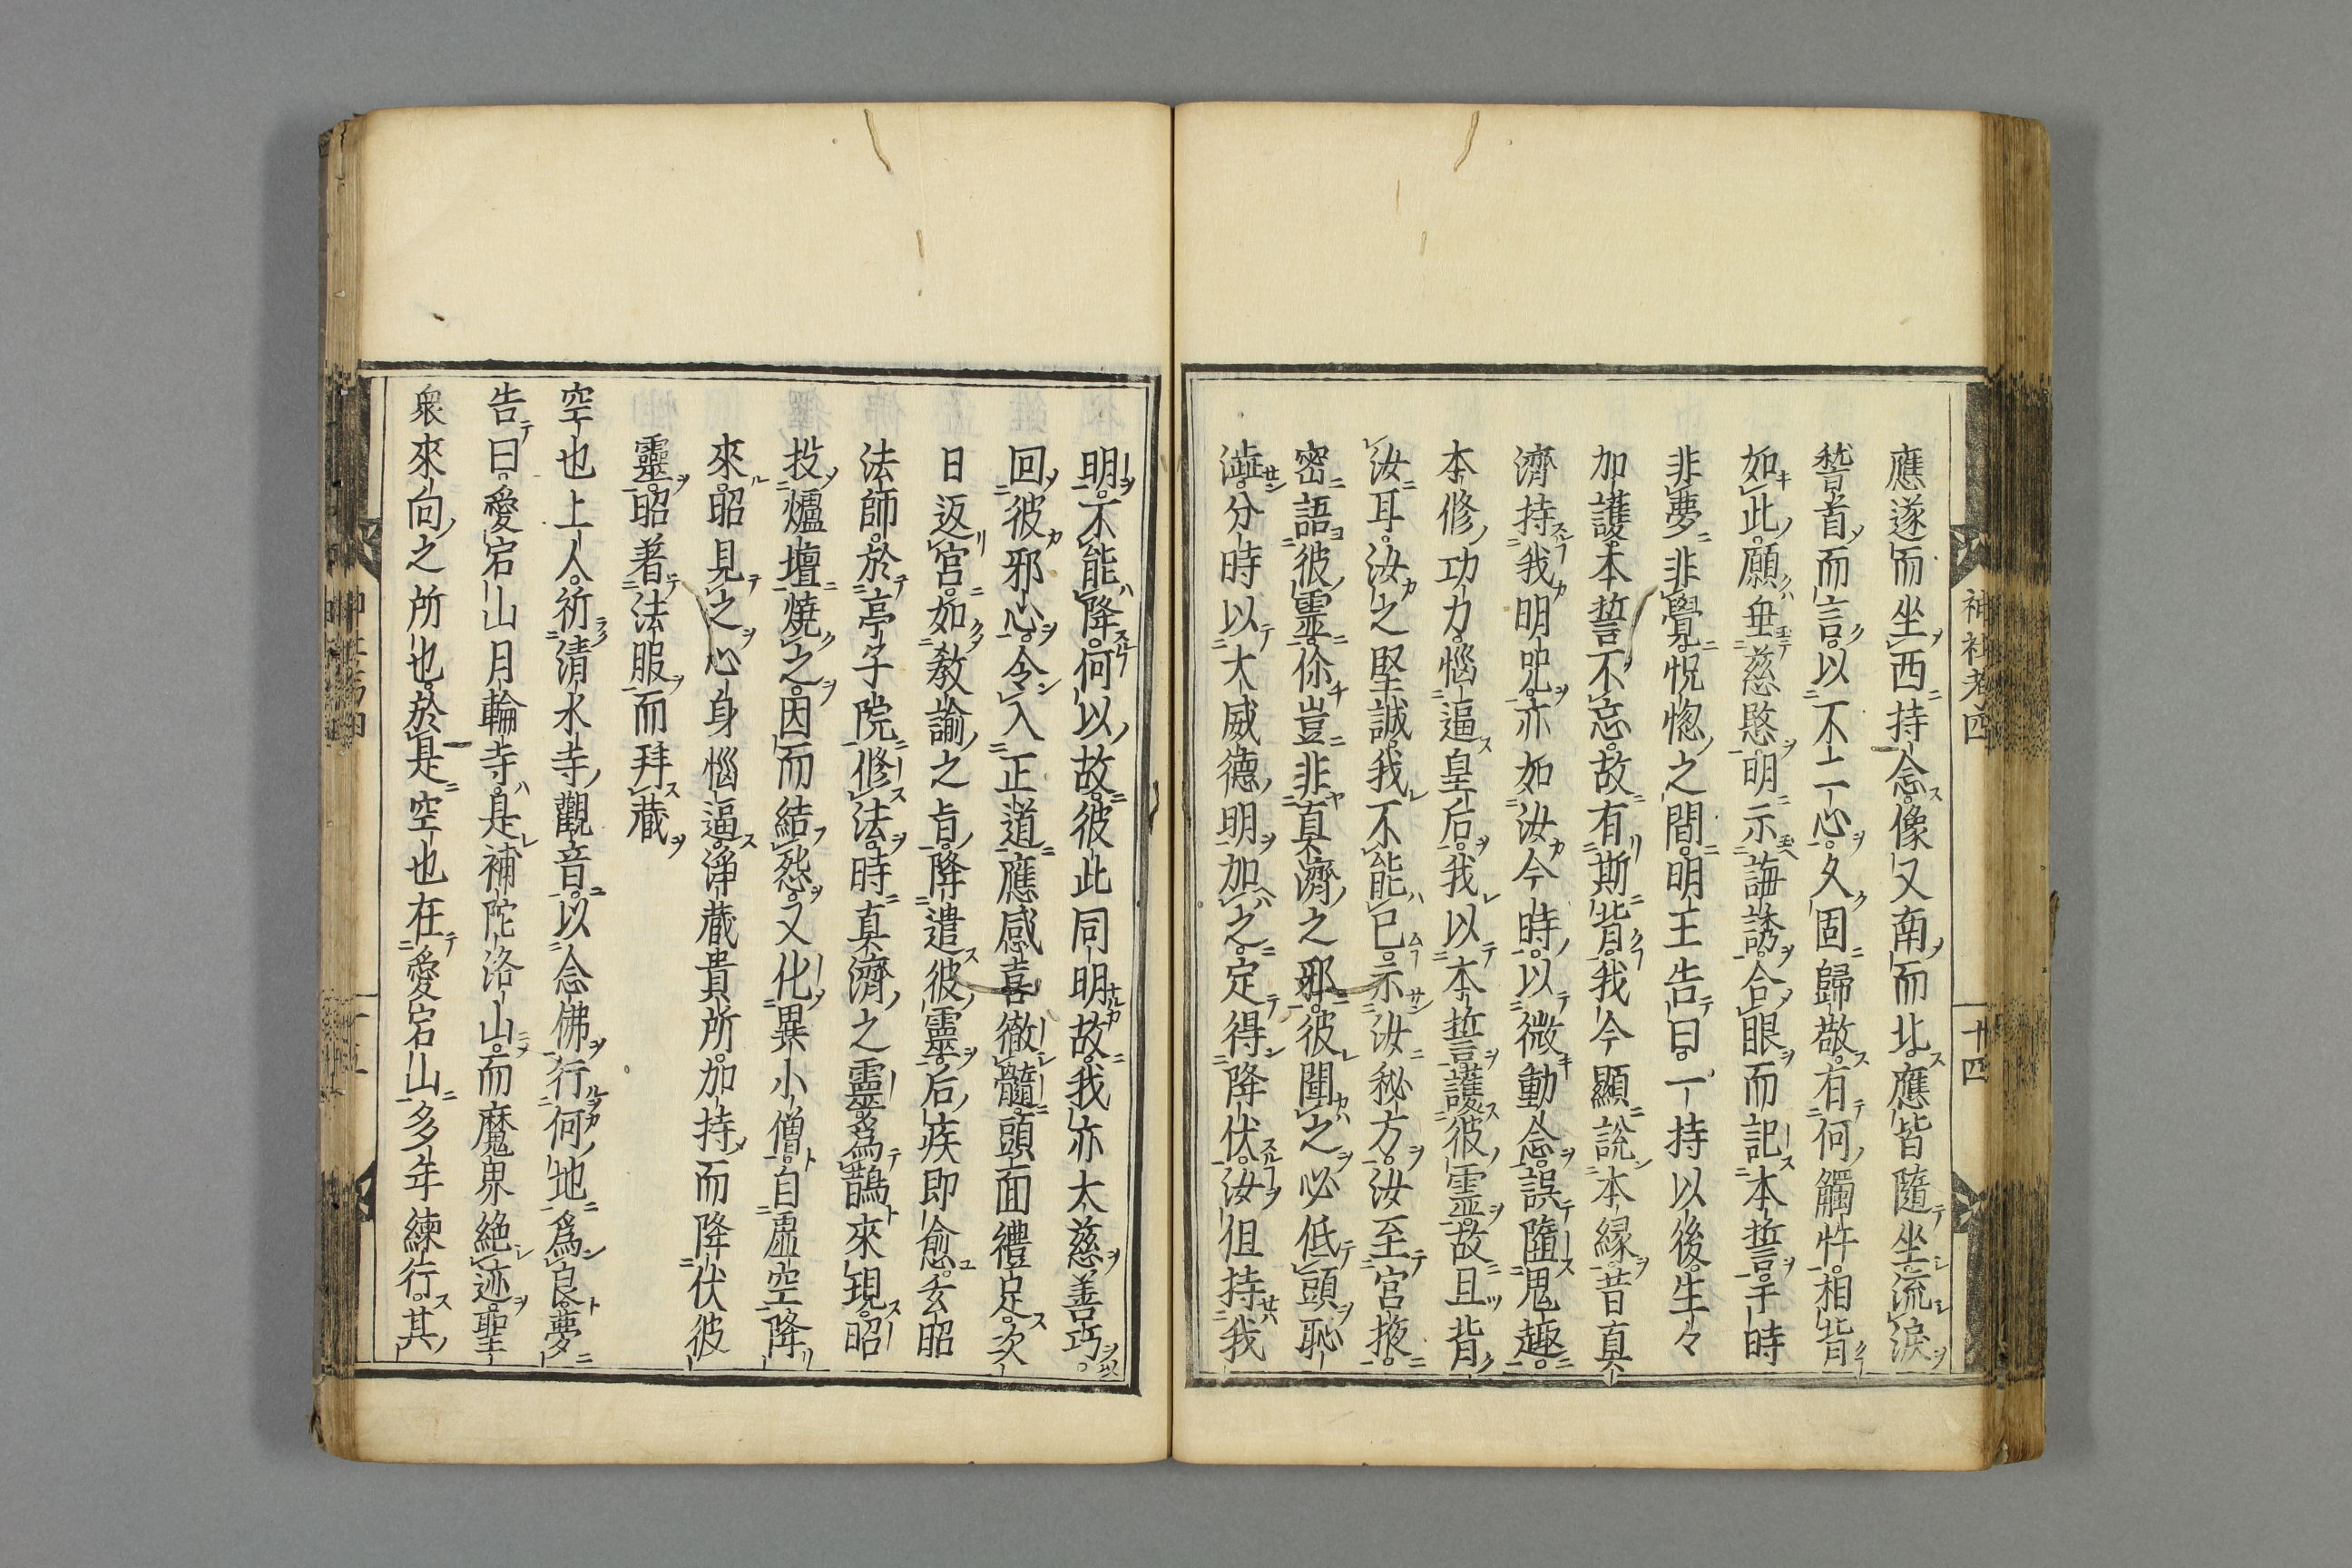 神社考四
十四
應遂而坐西持念像又南而北應皆隨坐流淚
誓首而言以不二心久固歸敬有何觸忤相背
如此願垂慈愍明示誨誘合眼而記本誓于時
非夢非覺怳惚之間明王告曰一持以後生々
加護本誓不忘故有斯背我今顯說本縁昔真
濟持我明咒亦如汝今時以微動念誤墮鬼趣
本修功力惱逼皇后我以本誓護彼靈故且背
汝耳汝之堅誠我不能已示汝秘方汝至宮掖
密語彼靈你豈非真濟之邪彼聞之必低頭恥
澁分時以大威德明加之定得降伏汝但持我
明不能降何以故彼此同明故我亦太慈善巧
回彼邪心令入正道應感喜徹髓頭面禮足次
日返宮如教諭之旨降遣彼靈后疾即愈玄昭
法師於亭子院修法時真濟之靈爲鵲來現昭
投爐壇燒之因而結怨又化異小僧自虛空降
來昭見之心身惱逼淨藏貴所加持而降伏彼
靈昭著法服而拜藏
空也上人祈清水寺觀音以念佛行何地爲良夢
告曰愛宕山月輪寺是補陀洛山而魔界絶迹聖
衆來向之所也於是空也在愛宕山多年練行其